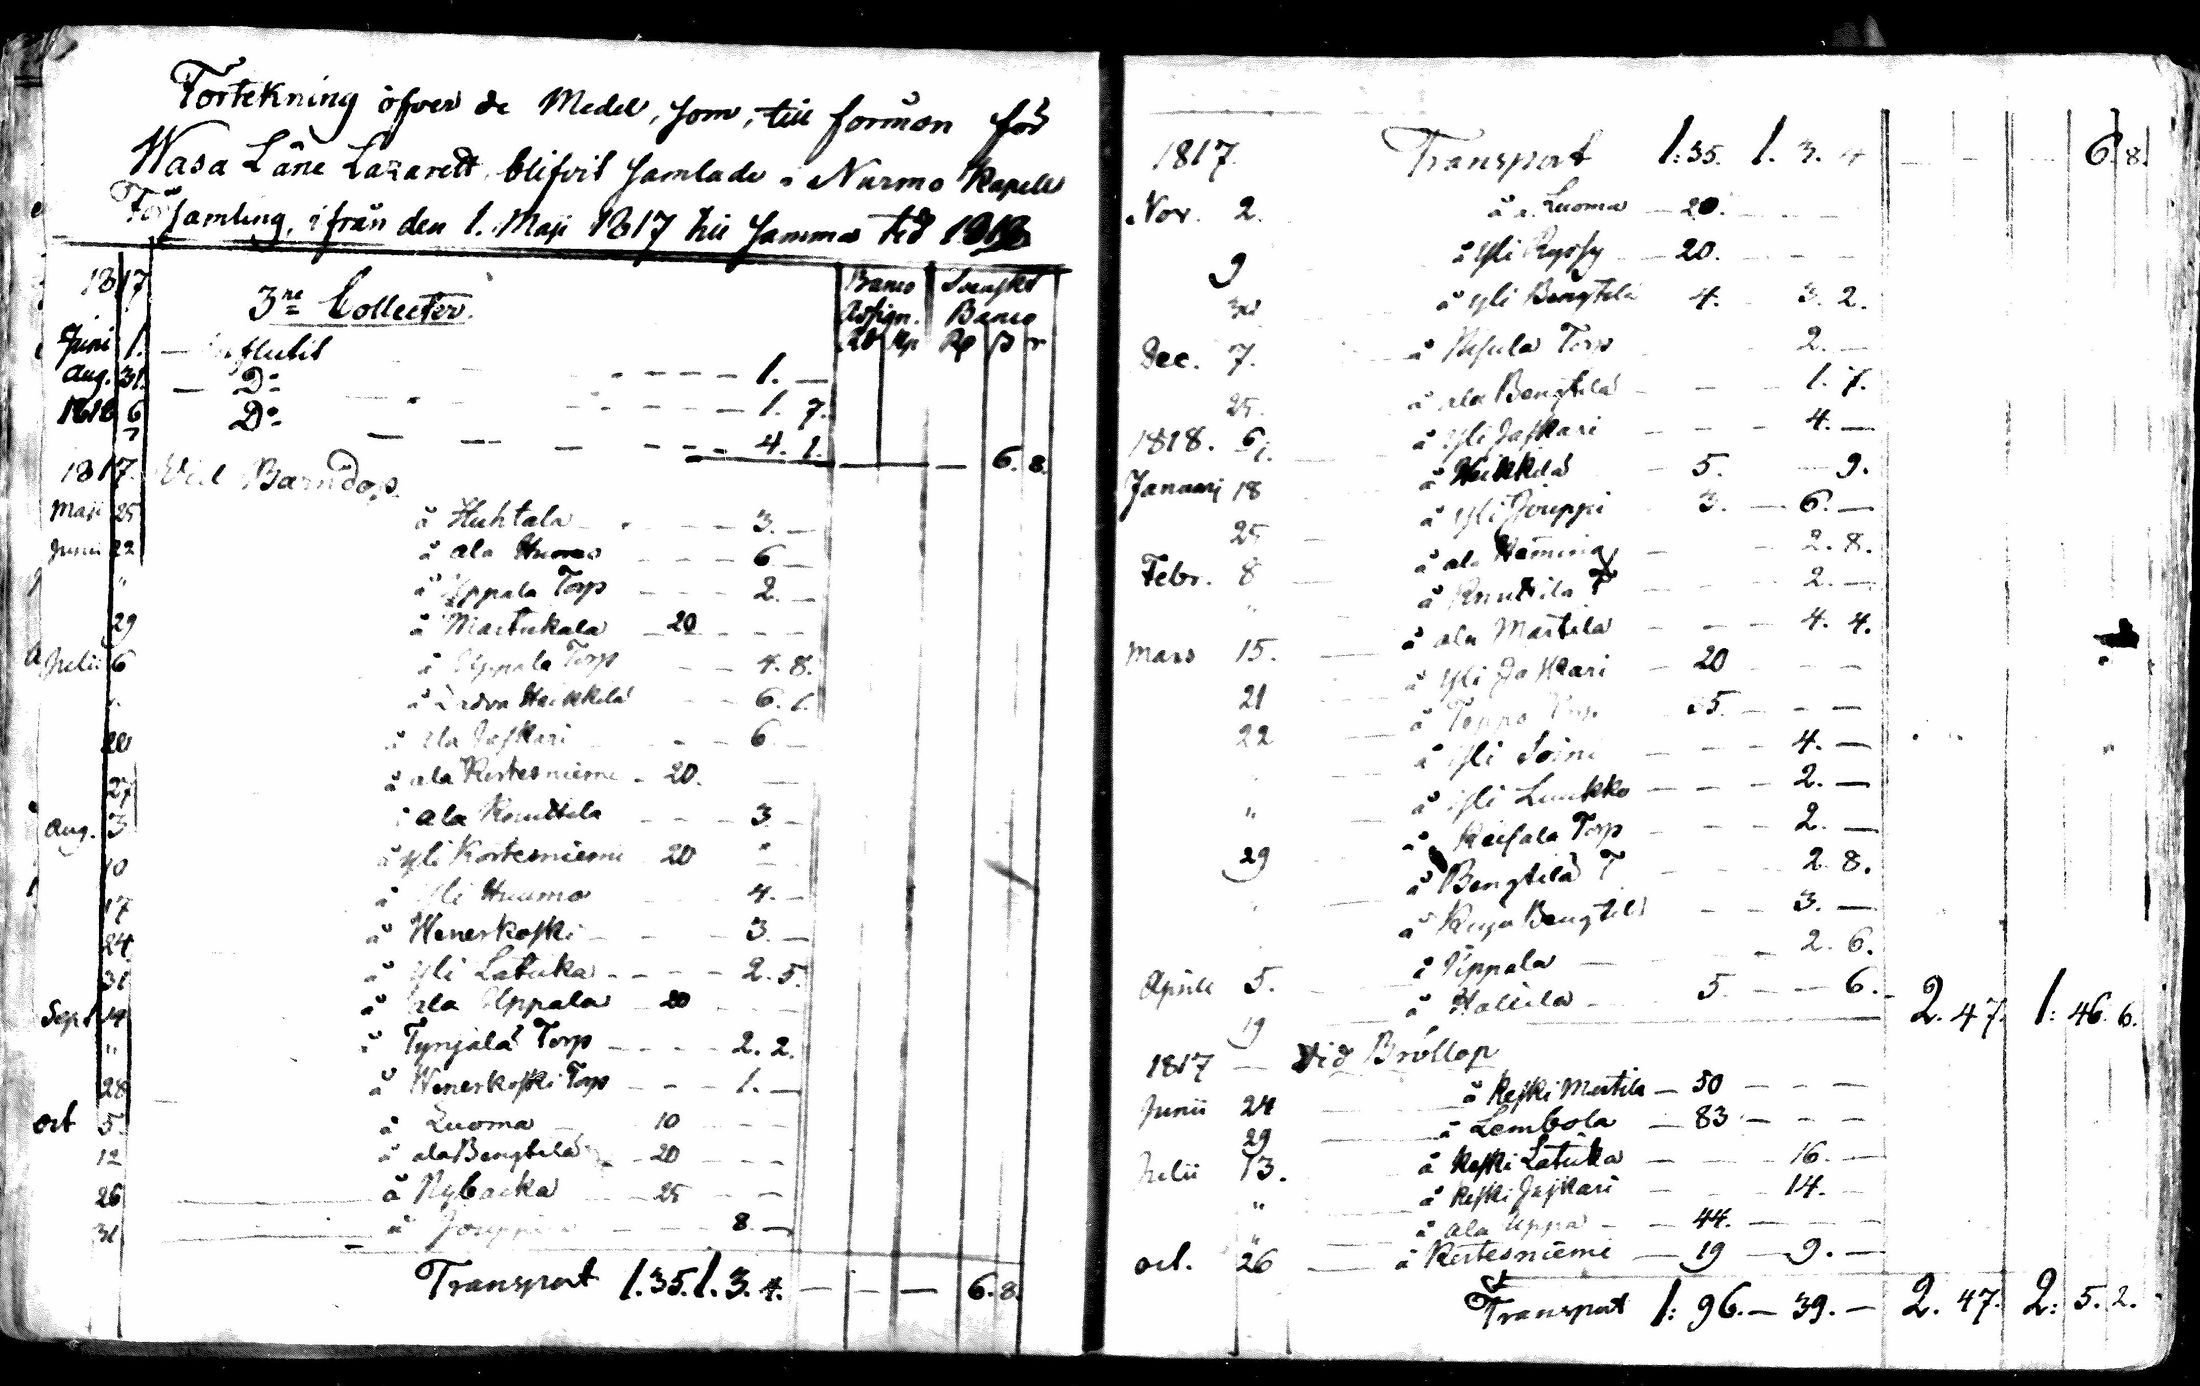 Förtekning öfver de Medel, som, till förmån för
Wasa Läns Lazarett, blifvit samlade i Nurmo Kapell
Församling, ifrån den 1. Maji 1817 till samma tid 1818
1817 3ne Collecter. Banco Assign. Svenskt Banco
Rb Kp Rd ß r
Juni 1. — influtit - - - - 1. —
Aug. 31. — Do - - - - 1. 7.
1818 6/1 Do — — - - - 4. 1. — — 6. 8.
1817. Vid Barndop.
Maji 25 å Huhtala - - - 3. —
Junii 22 å ala Huumo - - - 6 —
" å Uppala Torp - - - 2. —
29 å Martukala — 20 - - -
Julii 6 å Uppala Torp - - 4. 8.
" å Ladva Heikkilä - - 6.
20 å ala Jaskari - - 6 —
27 å ala Kortesniemi - 20. —
Aug. 3 å ala Knuttila - - - 3. —
10 å yli Kortesniemi 20 " —
17 å yli Huumo 4. —
24 å Wenerkoski - - - 3. —
31 å yli Latuka - - - - 2. 5.
Sept. 14 å ala Uppala — 20 - - -
" å Tynjälä Torp - - - - 2. 2.
28 å Wenerkoski Torp - - - 1. —
Oct 5. å Luoma 10 - - -
12 å ala Bengtilä - 20 - - -
26 å Nybacka - 25 - -
31 å Jouppi - - - 8. —
Transport 1. 35. 1. 3. 4. — — — 6. 8.
1817. Transport 1: 35. 1. 3. 4 — - — 6. 8.
Nov. 2. å a. Luoma — 20. - - -
9 å yli Ryssy — 20. - - -
30 å yli Bengtilä 4. 3. 2.
Dec. 7. å Nisula Torp 2. —
25. å ala Bengtilä - - - 1. 7.
1818. 6/1. å yli Jaskari - - - 4. —
Januarj 18 å Heikkilä - 5. — 9.
25 å yli Jouppi 3. — 6. —
Febr. 8 å ala Hämina - - 2. 8.
" å Knuttila T - - - 2. —
Mars 15. å ala Martila - - - 4. 4.
21 å yli Jaskari — 20 - - -
22 å Toppo Torp 25. — - -
å yli Soini - - - 4. —
" å yli Luukko - - - 2. —
29 å Keisala Torp - - - 2. —
å Bengtilä T - - - 2. 8.
å Kuja Bengtilä - - 3. —
Aprill 5. å Uppala — - - - 2. 6.
19 å Haliila — 5. - - 6. - 2. 47. 1: 46. 6.
1817 — Vid Bröllop
Junii 24 å Keski Martila — 50 - - -
29 å Lembola — 83 - - -
Julii 13. å Keski Latuka — - - 16. —
" å Keski Jaskari - - 14. —
" å ala Uppa - — 44. - - -
Oct. 26 å Kortesniemi — 19 — 9. —
Transport 1: 96. — 39. — 2. 47. 2: 5. 2.